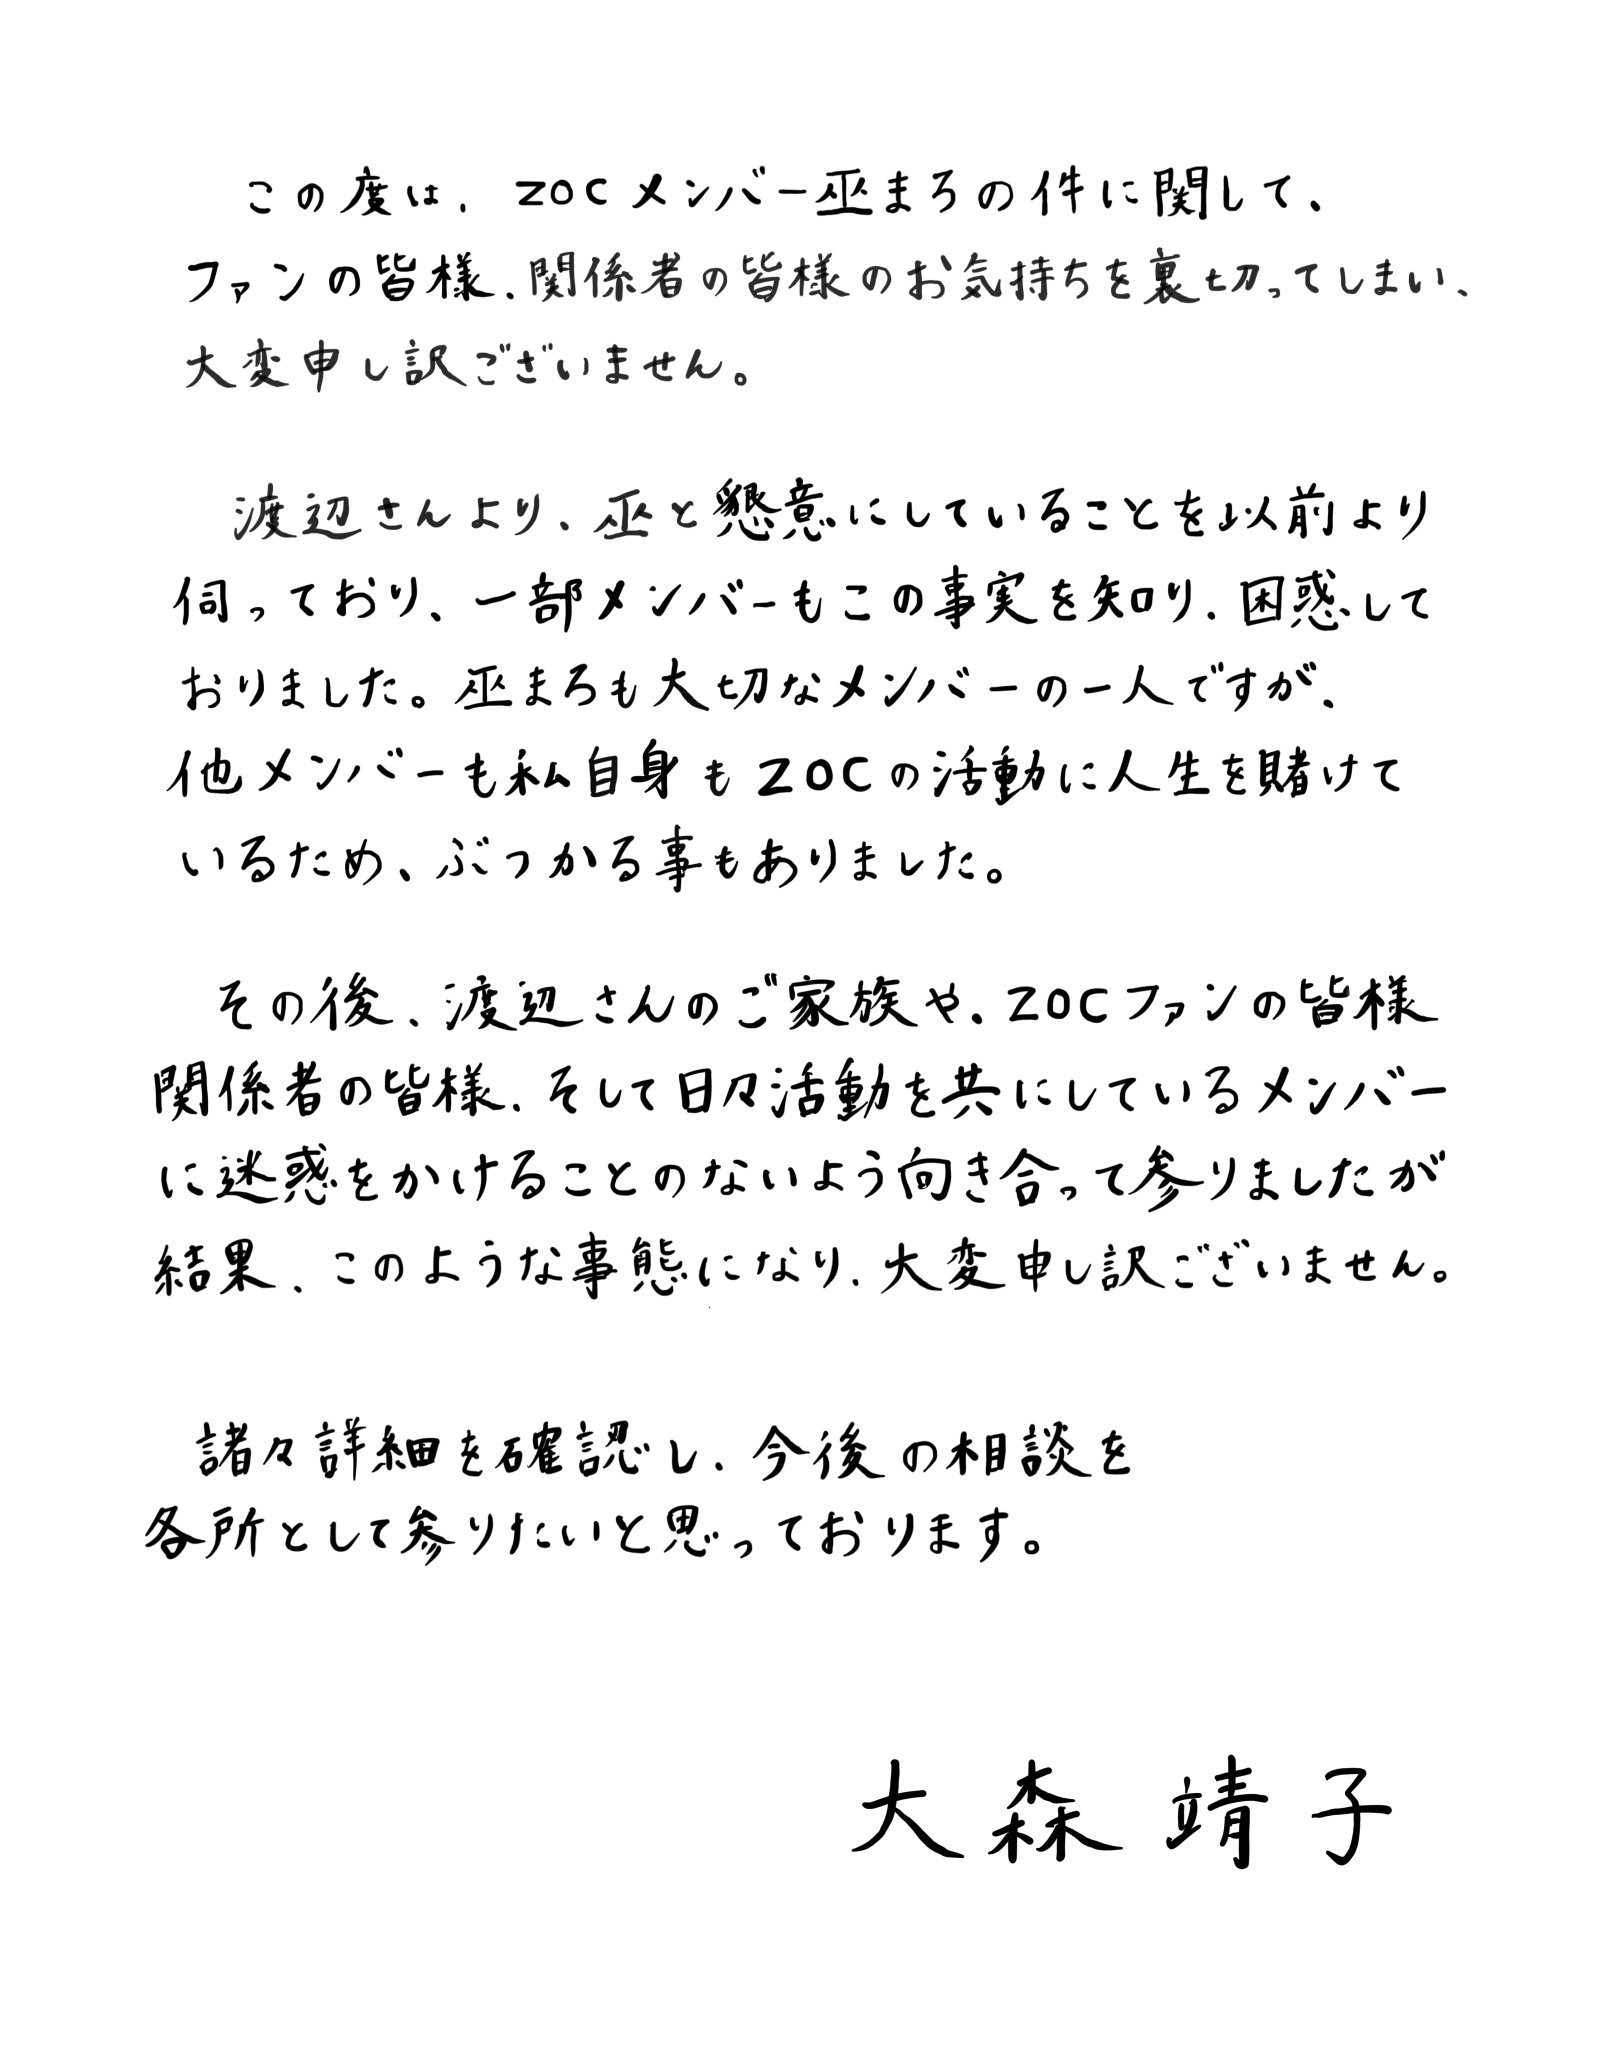 この度は、ZOCメンバー巫まろの件に関して、
ファンの皆様、関係者の皆様のお気持ちを裏切ってしまい、
大変申し訳ございません。
渡辺さんより、巫と懇意にしていることを以前より
伺っており、一部メンバーもこの事実を知り、困惑して
おりました。巫まろも大切なメンバーの一人ですが、
他メンバーも私自身もZOCの活動に人生を賭けて
いるため、ぶつかる事もありました。
その後、渡辺さんのご家族や、ZOCファンの皆様
関係者の皆様、そして日々活動を共にしているメンバー
に迷惑をかけることのないよう向き合って参りましたが
結果、このような事態になり、大変申し訳ございません。
諸々詳細を確認し、今後の相談を
各所として参りたいと思っております。
大森靖子